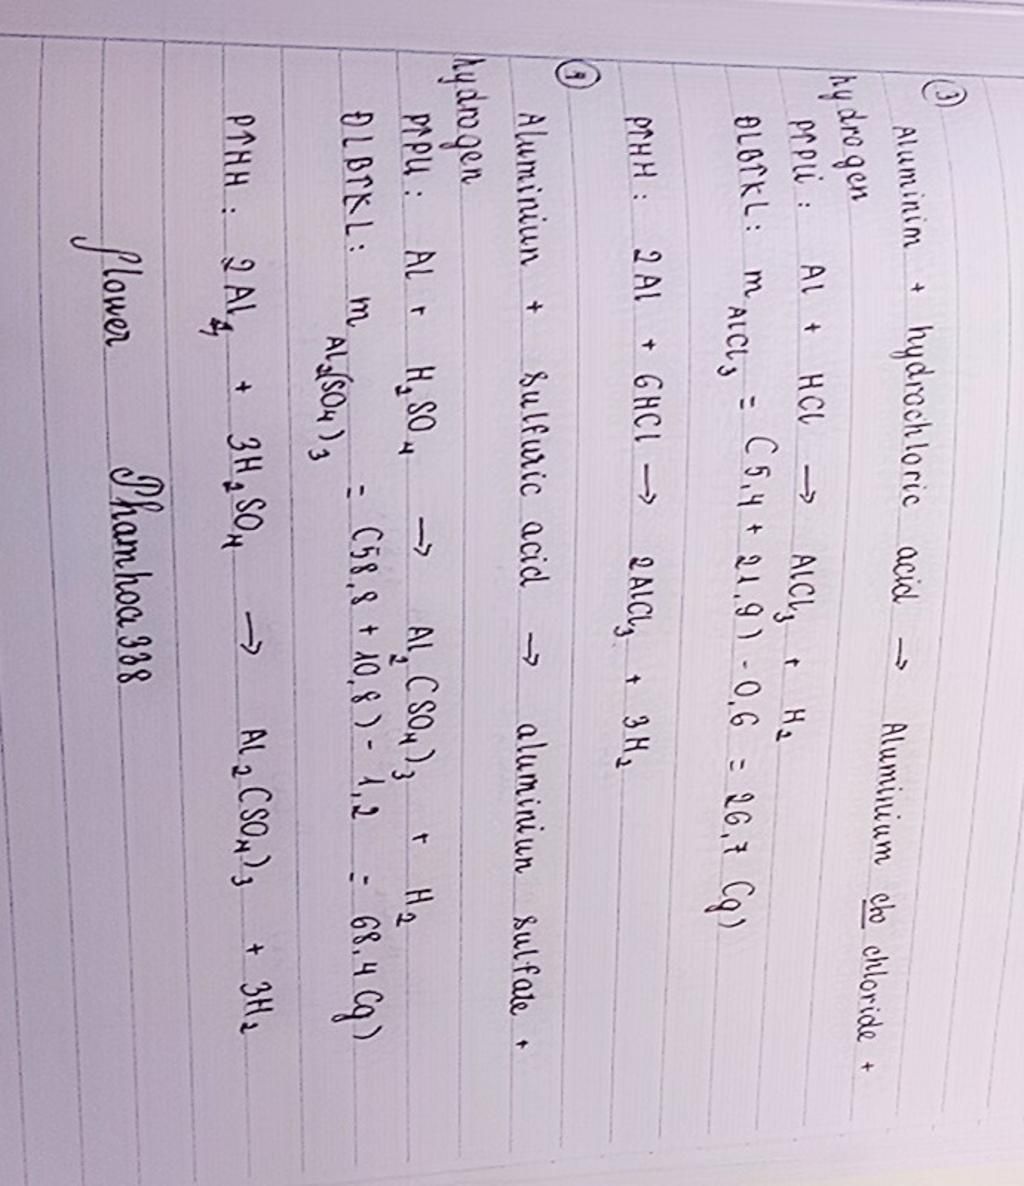 ③
Aluminim + hydrochloric acid → Aluminium cho chloride +
hydrogen
PTPƯ: Al + HCl → AlCl₃ + H₂
ĐLBTKL: m AlCl₃ = (5,4 + 21,9) - 0,6 = 26,7 (g)
PTHH: 2Al + 6HCl → 2AlCl₃ + 3H₂
④
Aluminiun + sulfuric acid → aluminiun sulfate +
hydrogen
PTPƯ: Al + H₂SO₄ → Al₂(SO₄)₃ + H₂
ĐLBTKL: m Al₂(SO₄)₃ = (58,8 + 10,8) - 1,2 = 68,4 (g)
PTHH: 2Al + 3H₂SO₄ → Al₂(SO₄)₃ + 3H₂
flower Phamhoa338